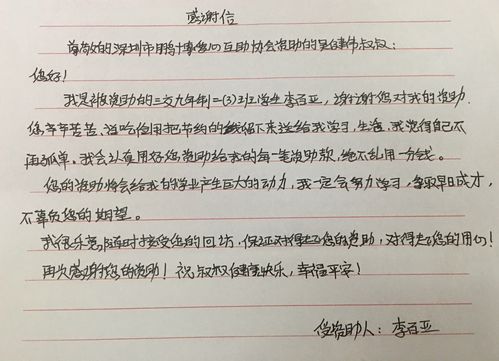 感谢信
尊敬的深圳市鹏博爱心互助协会资助的吴健伟叔叔：
您好！
我是被资助的三交九年制二(3)班学生李百亚，谢谢您对我的资助.
您辛辛苦苦、省吃俭用把节约的钱留下来送给我学习，生活，我觉得自己不
再孤单。我会认真用好您资助给我的每一笔资助款，绝不乱用一分钱。
您的资助将会给我的学业产生巨大的动力，我一定会努力学习，争取早日成才，
不辜负您的期望。
我很乐意随时接受您的回访，保证对得起您的资助，对得起您的用心！
再次感谢您的资助！祝叔叔健康快乐，幸福平安！
受资助人：李百亚